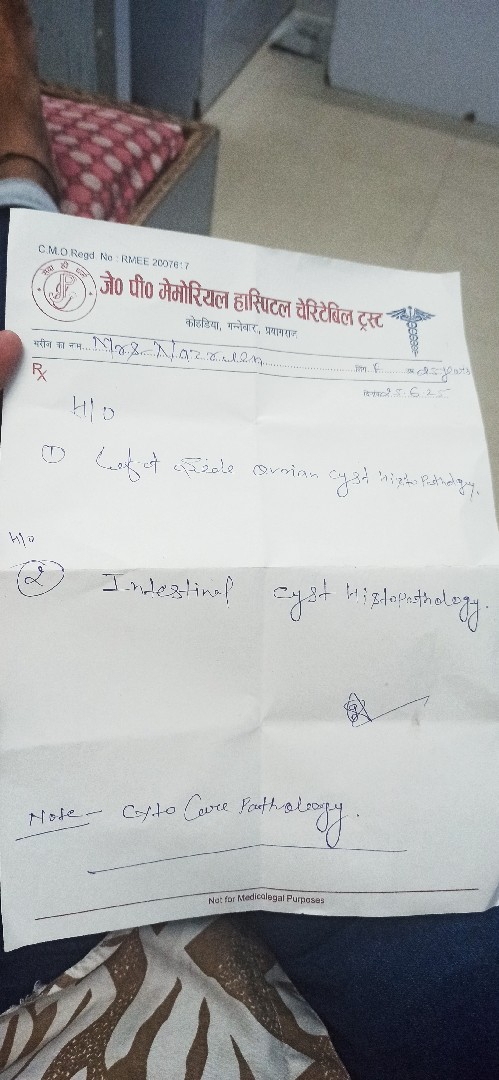 C.M.O.Regd No : RMEE 2007617
जे0 पी0 मेमोरियल हास्पिटल चेरिटेबिल ट्रस्ट
कोहडिया, गन्नेबार, प्रयागराज
मरीज का नाम Mrs- Nazreen लिंग F
Rx 25.6.25
H/O
① Left side ovarian cyst Histopathology.
H/o
② Intestinal cyst Histopathology.
Note - Cyto Care Pathology.
Not for Medicolegal Purposes